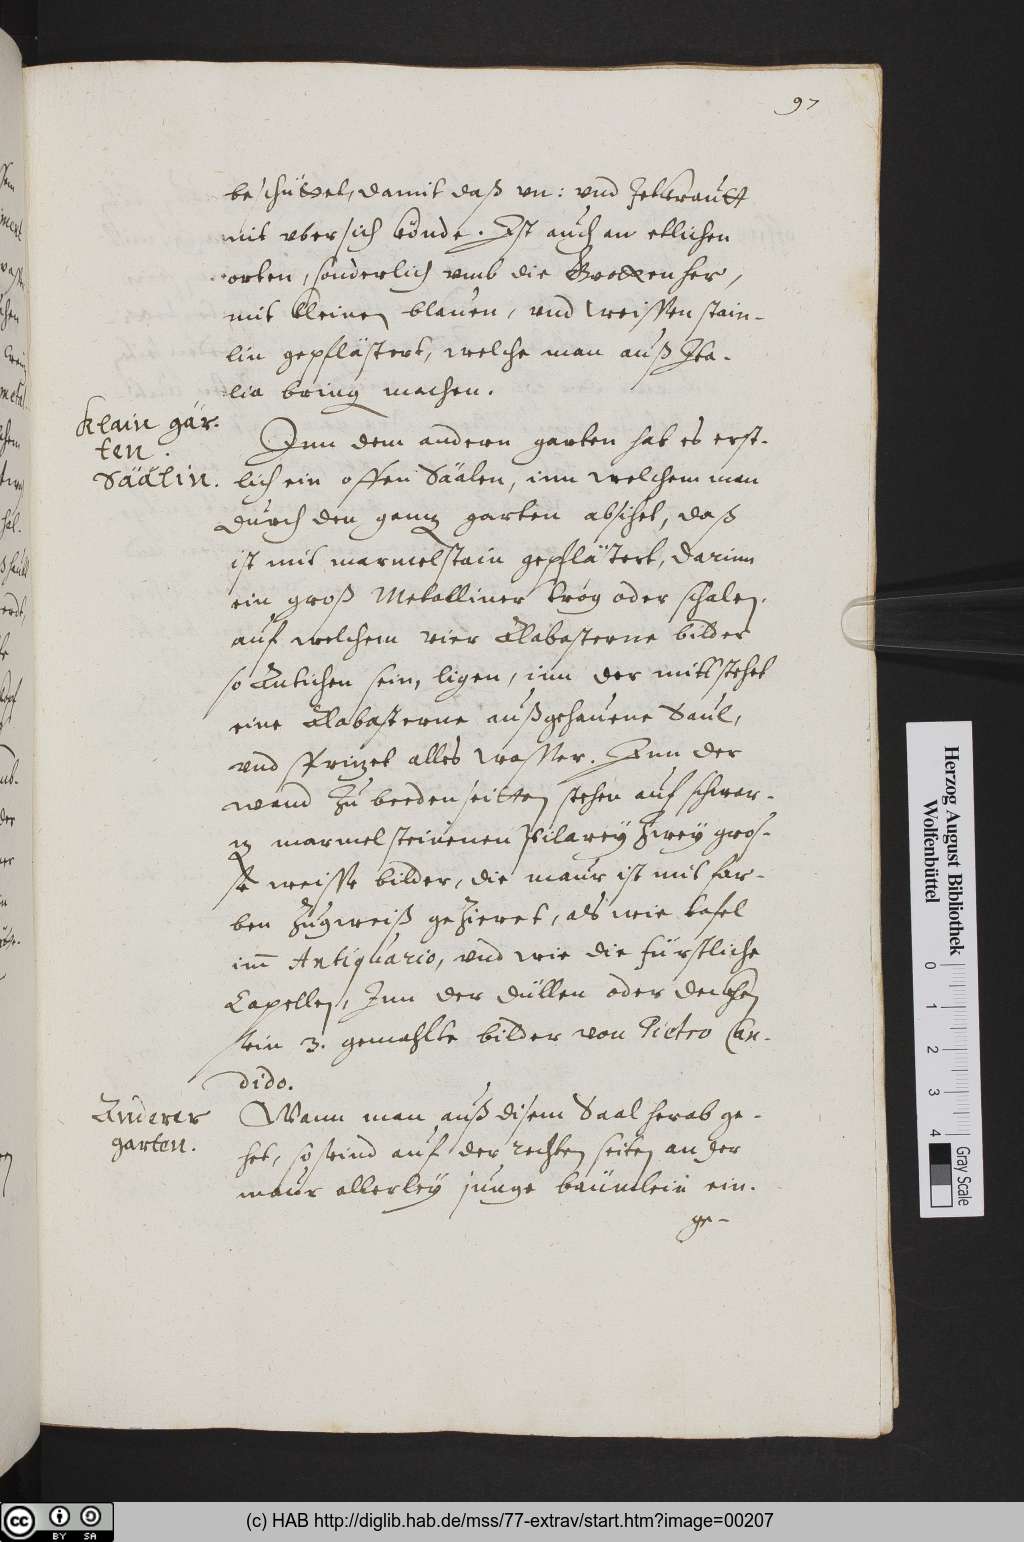 97
beschüttet, damit daß vn: vnd Jettkrautt
nit vbersich könde. Ist auch an etlichen
orten, sonderlich vmb die Grotten her,
mit kleinen blauen, vnd weissen stain-
lin gepflästert, welche man auß Ita-
lia bring machen.
Klain gär-
ten.
Säälin.
Inn dem andern garten hat es erst-
lich ein offen Säälen, inn welchem man
durch den gantz garten absihet, daß
ist mit marmelstain gepflästert, darinn
ein groß Metalliner trög oder schalen,
auf welchem vier Alabasterne bilder
so Äntichen sein, ligen, inn der mitt stehet
eine Alabasterne außgehauene Saul,
vnd spritzet alles wasser. Inn der
wand zu beeden seitten stehen auf schwar-
tz marmelsteinenen Pilareÿ zweÿ gros-
se weisse bilder, die maur ist mit far-
ben zugweiß gezieret, als wie tafel
im̅ Antiquario, vnd wie die fürstliche
Capellen, Inn der düllen oder deckhen
sein 3. gemahlte bilder von Pietro Can-
dido.
Anderer
garten.
Wann man auß disem Saal herab ge-
het, so seind auf der rechten seiten an der
maur allerleÿ junge bäumlein ein-
ge-
Herzog August Bibliothek
Wolfenbüttel
0 1 2 3 4
Gray Scale
(c) HAB http://diglib.hab.de/mss/77-extrav/start.htm?image=00207
cc BY SA